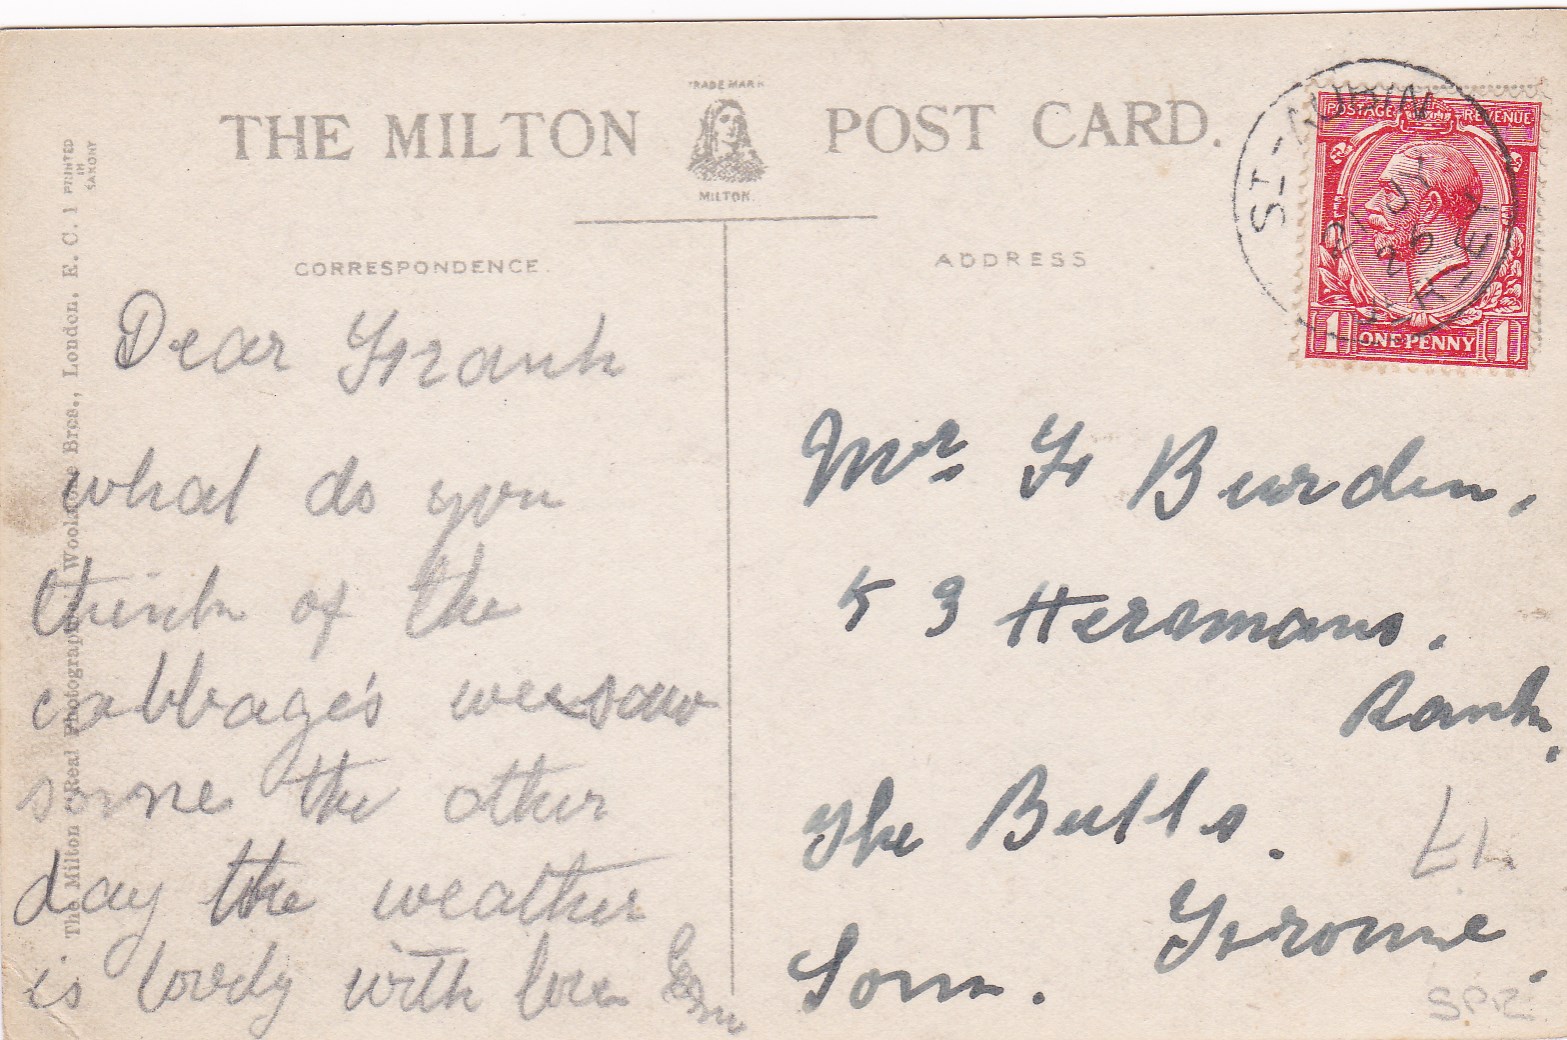 TRADE MARK
THE MILTON POST CARD.
MILTON.
CORRESPONDENCE.
ADDRESS
The Milton "Real Photograph" Woolstone Bros., London. E. C. 1
PRINTED
IN
SAXONY
Dear Frank
what do you
think of the
cabbage's we saw
some the other
day the weather
is lovely with love
Mr. F Burden,
53 Hermans.
Rank.
The Butts.
Frome.
Som.
POSTAGE REVENUE
1 ONE PENNY 1
ST-AUBIN
21 JY
25
17
SPR